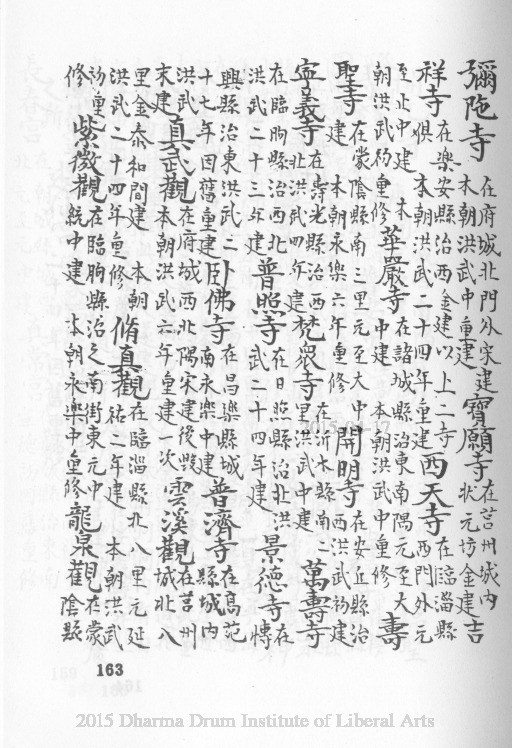 彌陀寺在府城北門外宋建本朝洪武中重建寶願寺在莒州城內状元坊金建吉
祥寺在樂安縣治西金建以上二寺俱本朝洪武二十四年重建西天寺在臨淄縣西門外元
至止中建本朝洪武初重修華嚴寺在諸城縣治東南隅元至大中建本朝洪武中重修壽
聖寺在蒙陰縣南三里元至大中建本朝永樂六年重修開明寺在安丘縣治西洪武初建
寧義寺在壽光縣治西北洪武四年建梵眾寺在沂水縣南二里洪武中建萬壽寺
在臨朐縣治西北洪武二十三年建普照寺在日照縣治北洪武二十四年建景德寺在博
興縣治東洪武二十七年因舊重建卧佛寺在昌樂縣城南永樂中建普濟寺在高苑縣城內
洪武末建真武觀在府城西北隅宋建後毀本朝洪武六年重建一次雲溪觀在莒州城北八
里金泰和間建本朝洪武二十四年重修脩真觀在臨淄縣北八里元延祐二年建本朝洪武
初重修紫微觀在臨朐縣治之南街東元中統中建本朝永樂中重修龍泉觀在蒙陰縣
163
2015 Dharma Drum Institute of Liberal Arts